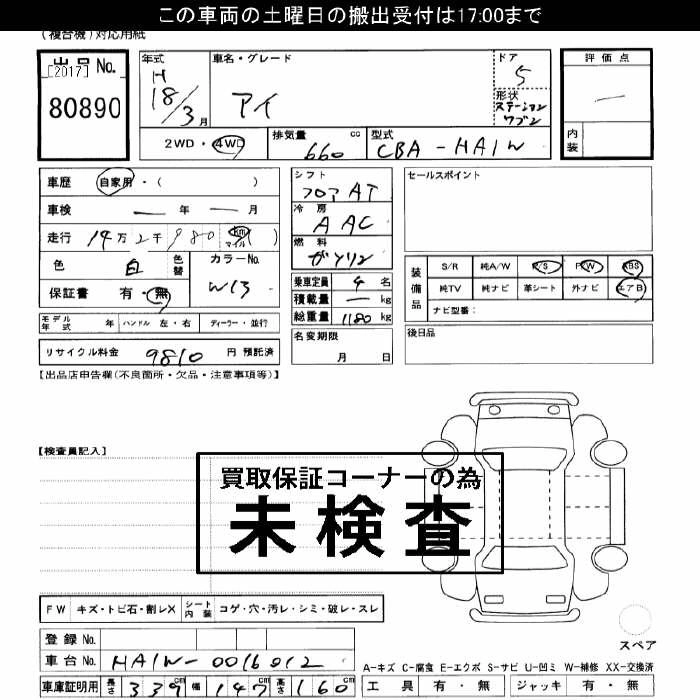 この車両の土曜日の搬出受付は17:00まで
(複合機)対応用紙
出品No.
[2017]
80890
年式
H
18/3月
車名・グレード
アイ
ドア
5
形状
ステーション
ワゴン
評価点
—
内装
2WD・4WD
排気量 cc
660
型式
CBA-HA1W
車歴 自家用・( )
車検 — 年 — 月
走行 14万2千980 km マイル ( )
色 白 色替
カラーNo.
W13
保証書 有・無
シフト
フロア AT
冷房
A AC
燃料
ガソリン
乗車定員 4名
積載量 — kg
総重量 1180 kg
セールスポイント
装備品
S/R 純A/W P/S P/W ABS
純TV 純ナビ 革シート 外ナビ エアB
ナビ型番:
モデル年式 年 ハンドル 左・右 ディーラー・並行
リサイクル料金 9810 円 預託済
名変期限
月 日
後日品
【出品店申告欄(不良箇所・欠品・注意事項等)】
【検査員記入】
買取保証コーナーの為
未検査
FW キズ・トビ石・割レX シート内装 コゲ・穴・汚レ・シミ・破レ・スレ
登録No.
車台No. HA1W-0016012
車庫証明用 長さ 339cm 幅 147cm 高さ 160cm
スペア
A-キズ C-腐食 E-エクボ S-サビ U-凹ミ W-補修 XX-交換済
工具 有・無 ジャッキ 有・無